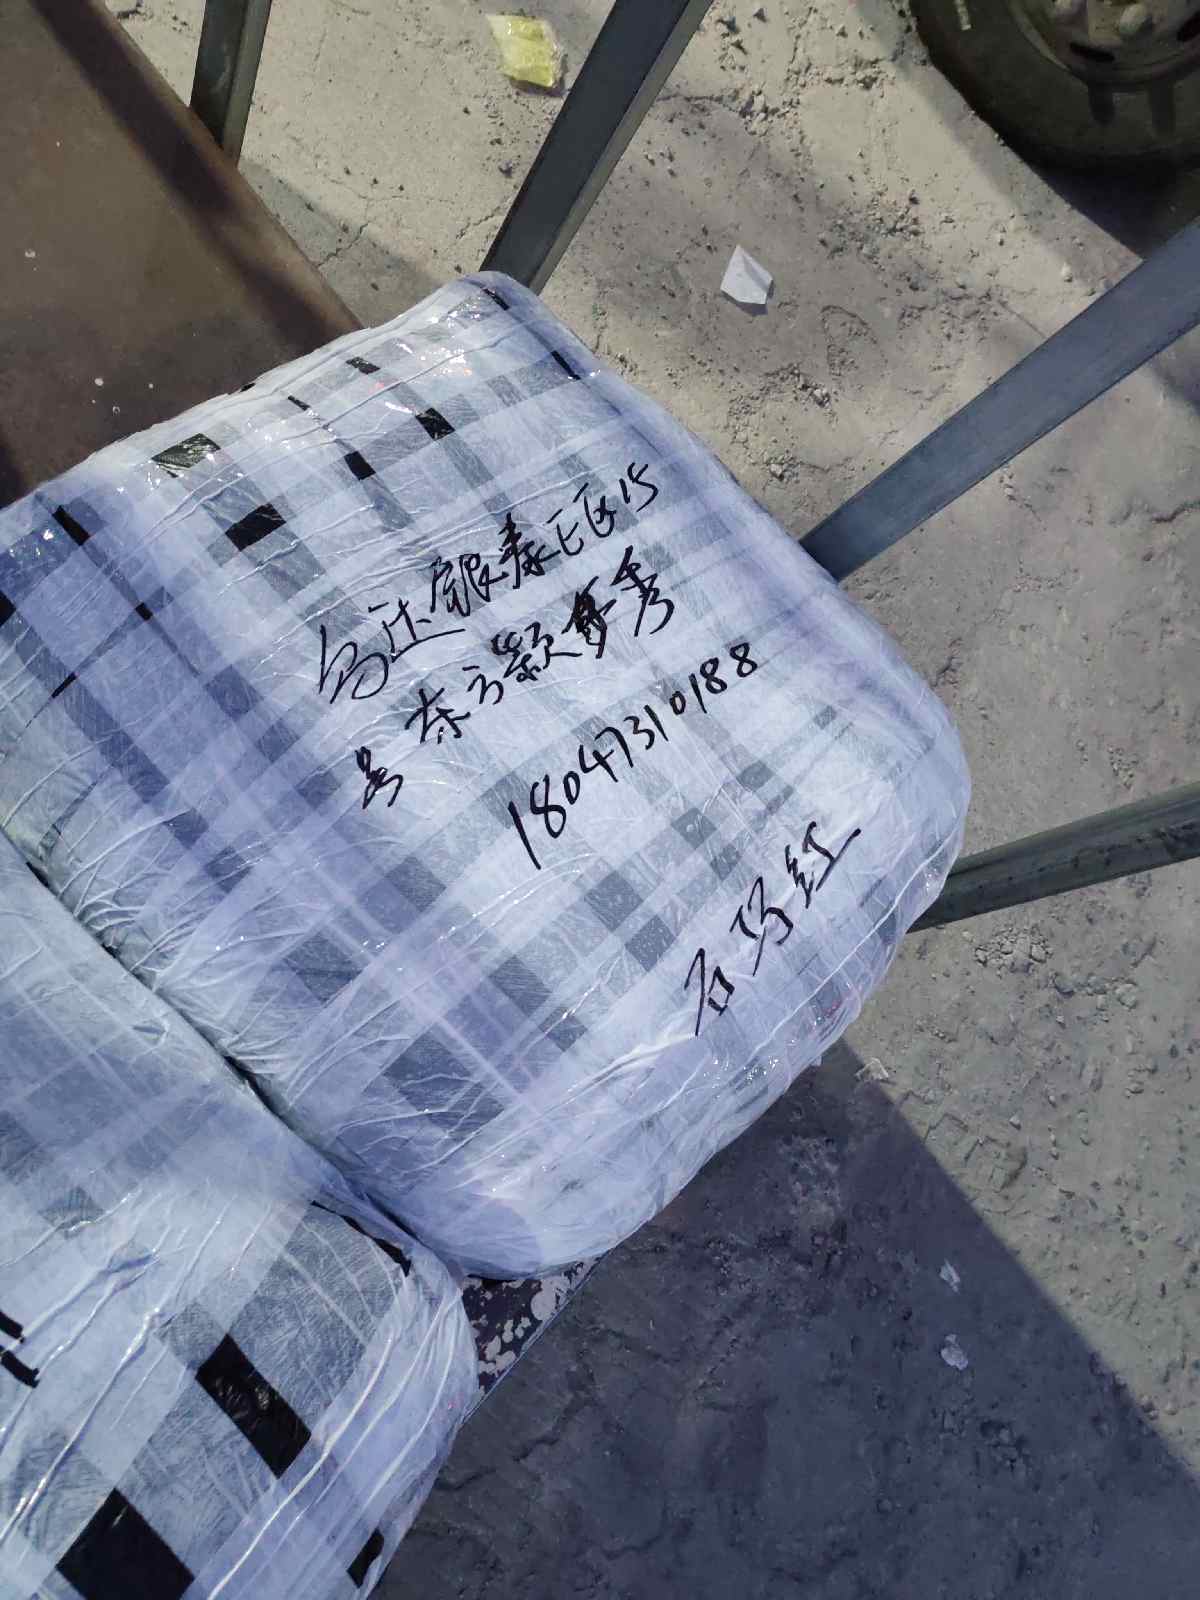 乌达银泰E区15
号 东方颖梦秀
18047310188
石巧红